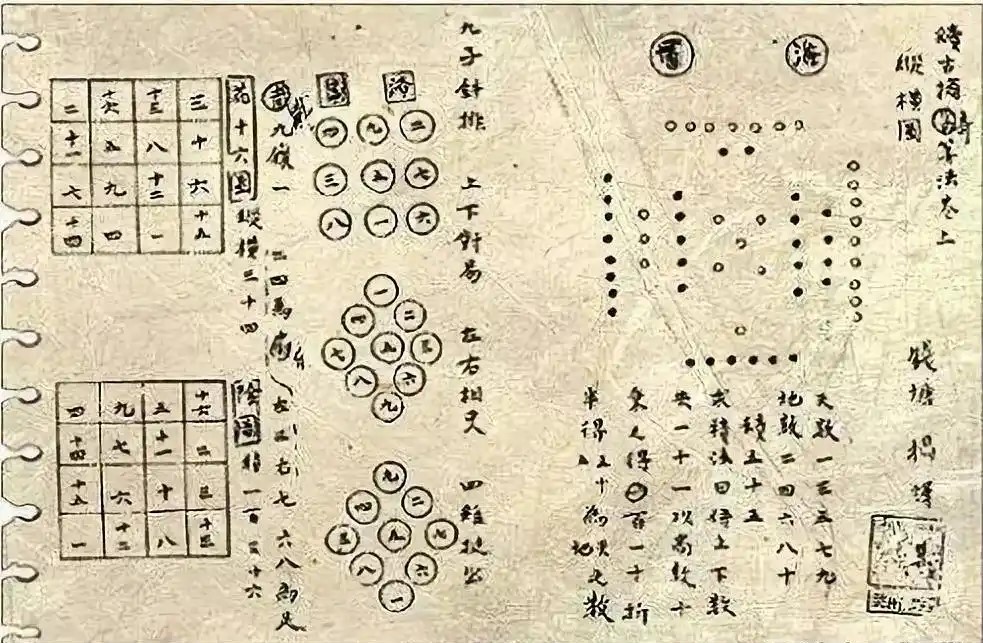 續古摘奇算法卷上
縱橫圖
錢塘楊輝
河圖
天數一三五七九
地數二四六八十
積五十五
求積法曰併上下數
共一十一以高數十
乘之得百一十折
半得五十五為天地之數
九子斜排 上下對易 左右相更 四維挺出
洛書
四 九 二
三 五 七
八 一 六
一
四 二
七 五 三
八 六
九
九
四 二
三 五 七
八 六
一
戴九履一 二四為肩 左三右七 六八為足
花十六圖 縱橫三十四
二 十六 十三 三
十一 五 八 十
七 九 十二 六
十四 四 一 十五
陰圖 一百三十六
四 九 五 十六
十四 七 十一 二
十五 六 十 三
一 十二 八 十三